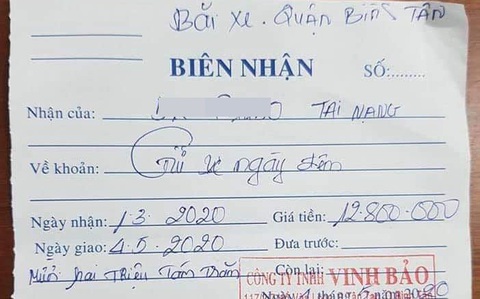 Bãi xe. Quận Bình Tân
BIÊN NHẬN
SỐ:........
Nhận của: TAI NẠNG
Về khoản: Gửi xe ngày đêm
Ngày nhận: 1.3.2020 Giá tiền: 12.800.000
Ngày giao: 4.5.2020 Đưa trước:
Mười hai Triệu Tám Trăm Còn lại:
CÔNG TY TNHH VĨNH BẢO
Ngày 4 tháng 5 năm 2020